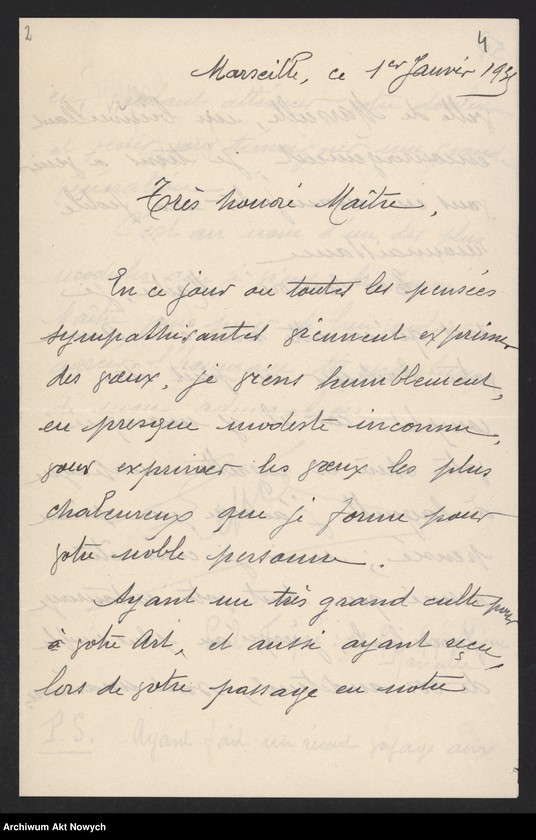 2
4
Marseille, ce 1er Janvier 1931
Très honoré Maître,
En ce jour ou toutes les pensées
sympathisantes viennent exprimer
des vœux, je viens humblement,
en presque modeste inconnu,
vous exprimer les vœux les plus
chaleureux que je forme pour
votre noble personne.
Ayant un très grand culte pour
à votre Art, et aussi ayant reçu,
lors de votre passage en notre
P.S. Ayant fait un récent voyage aux
Archiwum Akt Nowych